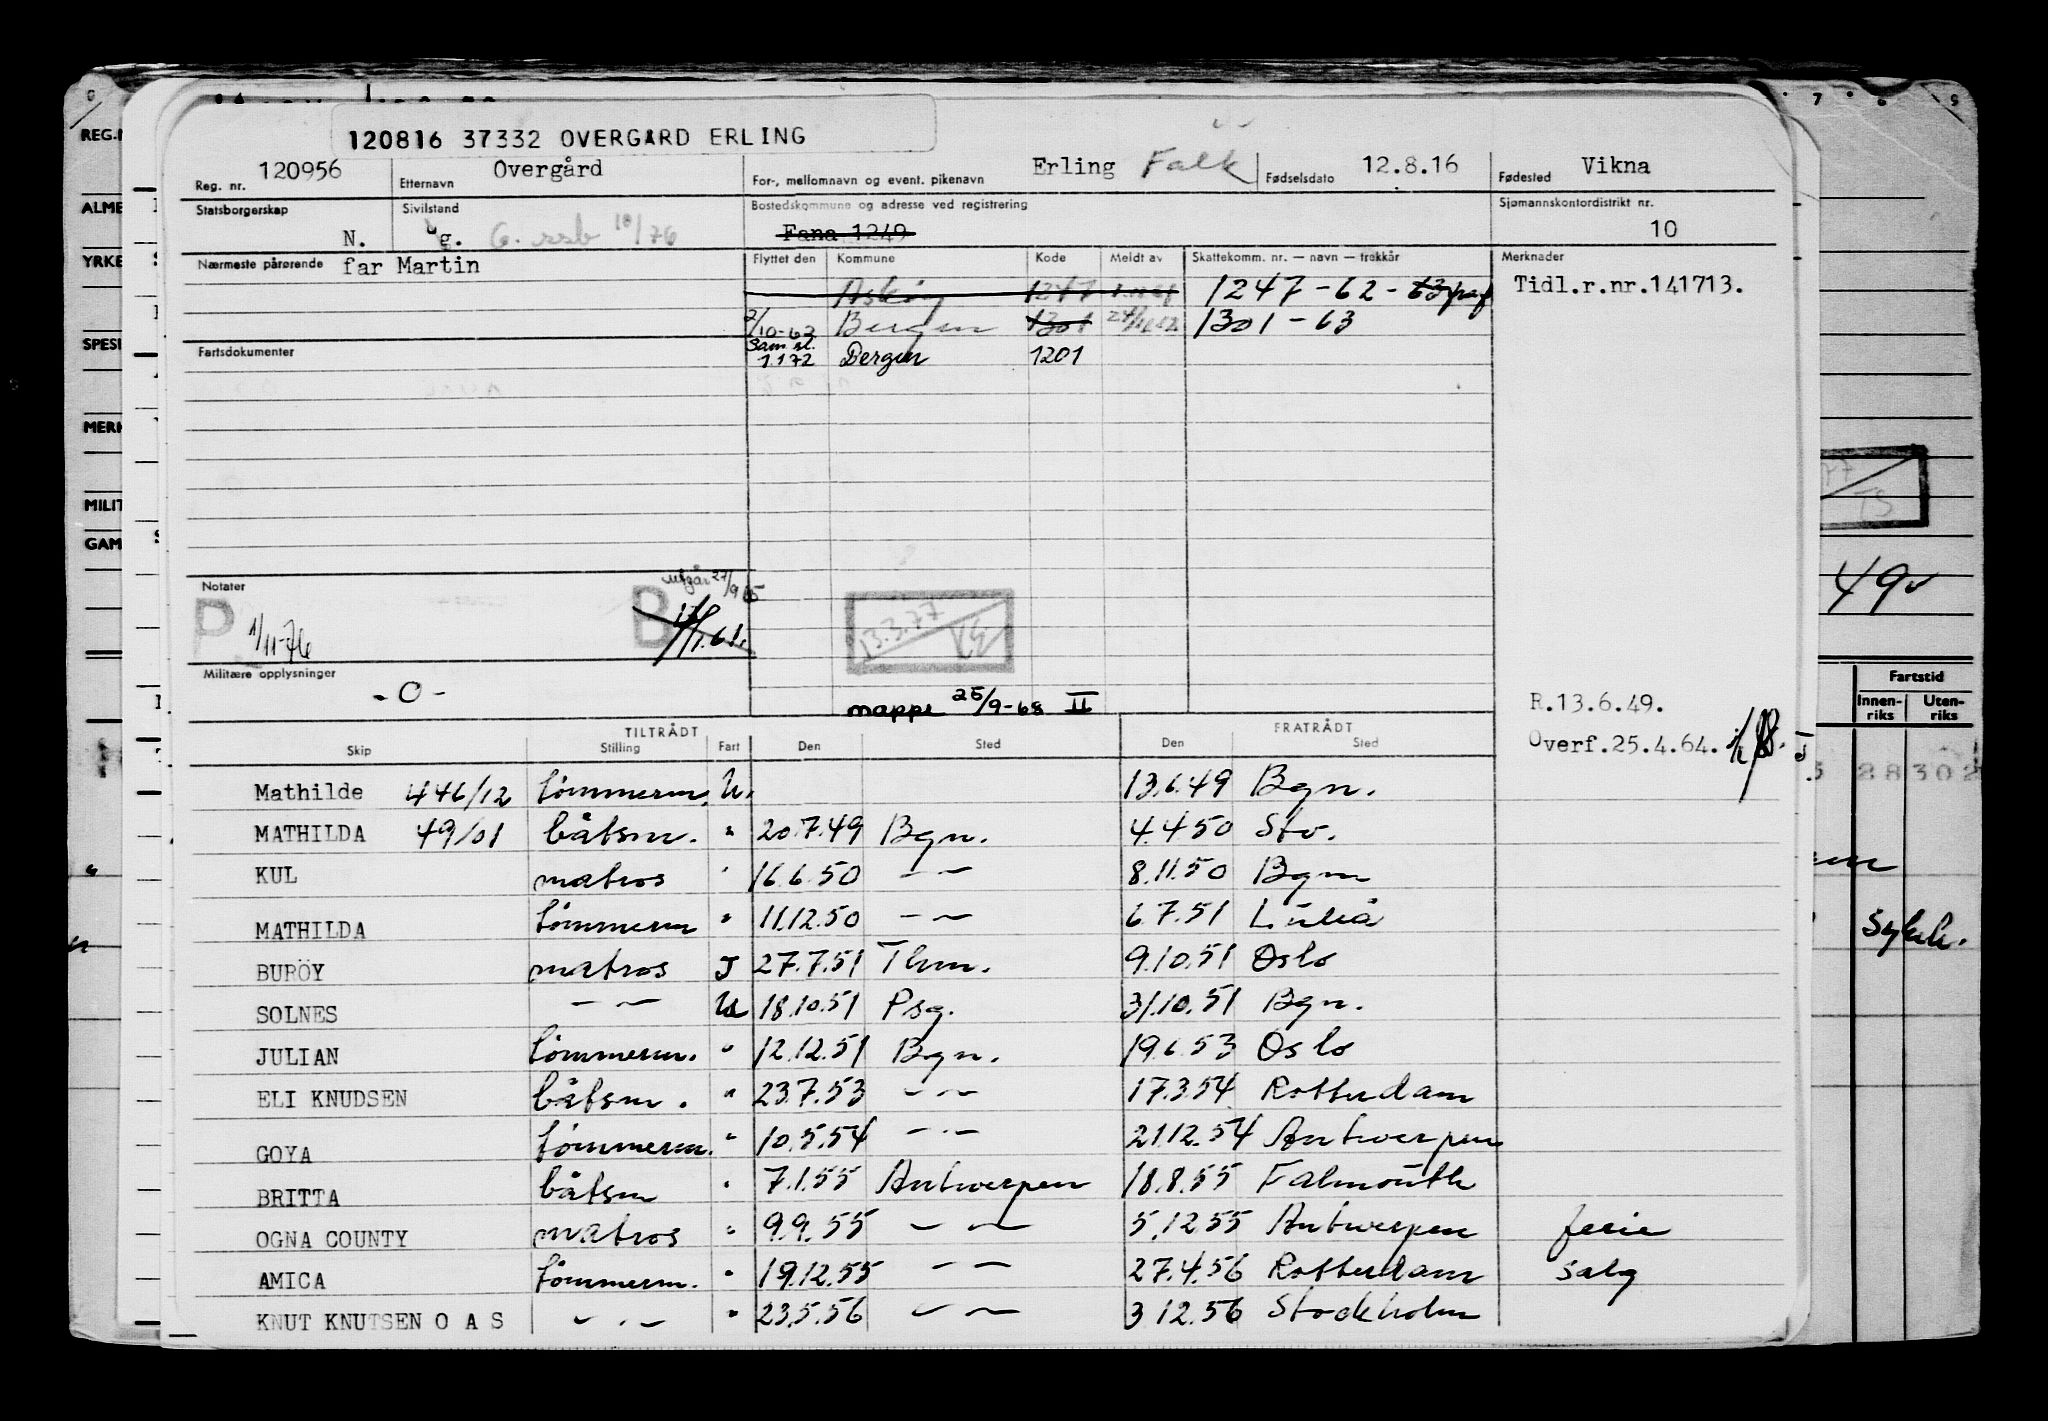 120816 37332 OVERGÅRD ERLING
Reg. nr. 120956 Etternavn Overgård For-, mellomnavn og event. pikenavn Erling Falk Fødselsdato 12.8.16 Fødested Vikna
Statsborgerskap N. Sivilstand g. G. ssb 10/76 Bostedskommune og adresse ved registrering Fana 1249 Sjømannskontordistrikt nr. 10
Nærmeste pårørende far Martin Flyttet den Kommune Kode Meldt av Skattekomm. nr. — navn — trekkår Merknader
Askøy 1247 1247-62- Tidl.r.nr.141713.
2/10-62 Bergen 1301 1301-63
Sam.sl.
1.1.72 Bergen 1201
Fartsdokumenter
Notater
P 1/11-76 B utgår 27/9 65
13.3.77
Militære opplysninger
-0- mappe 25/9-68 II
R.13.6.49.
Overf.25.4.64.
TILTRÅDT FRATRÅDT
Skip Stilling Fart Den Sted Den Sted
Mathilde 446/12 tömmerm. U. 13.6.49 Bgn.
MATHILDA 49/01 båtsm. " 20.7.49 Bgn. 4.4.50 Stv.
KUL matros " 16.6.50 — ~ 8.11.50 Bgn
MATHILDA tömmerm " 11.12.50 — ~ 6.7.51 Luleå
BURÖY matros J 27.7.51 Thm. 9.10.51 Oslo
SOLNES — ~ U 18.10.51 Psg. 31.10.51 Bgn.
JULIAN tömmerm. " 12.12.51 Bgn. 19.6.53 Oslo
ELI KNUDSEN båtsm. " 23.7.53 — ~ 17.3.54 Rotterdam
GOYA tömmerm. " 10.5.54 — ~ 21.12.54 Antwerpen
BRITTA båtsm " 7.1.55 Antwerpen 18.8.55 Falmouth
OGNA COUNTY matros " 9.9.55 — ~ 5.12.55 Antwerpen ferie
AMICA tömmerm. " 19.12.55 — ~ 27.4.56 Rotterdam salg
KNUT KNUTSEN O A S — ~ " 23.5.56 — ~ 3.12.56 Stockholm
REG.N
ALME
YRKE
SPESI
MERK
MILIT
GAM
7 6 5
49
Fartstid
Innen-
riks
Uten-
riks
28302
Sykeh.